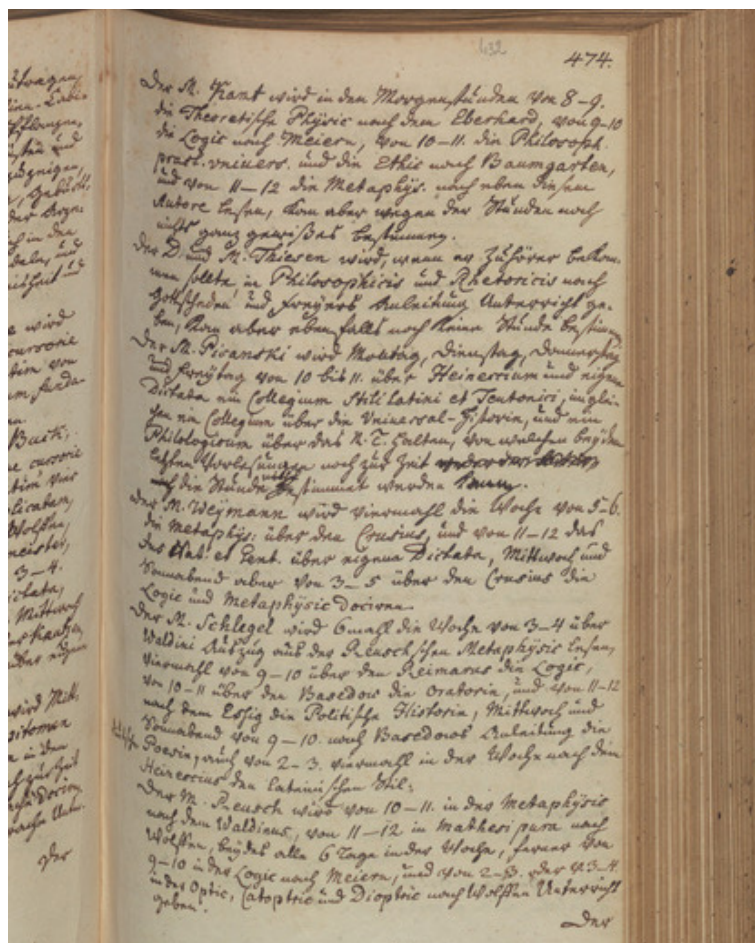 632
474.
Der M. Kant wird in den Morgenstunden von 8–9.
die Theoretische Physic nach dem Eberhard, von 9–10
die Logic nach Meiern, von 10–11. die Philosoph.
pract. univers. und die Ethic nach Baumgarten,
und von 11–12 die Metaphys. nach eben diesem
Autore lesen, kan aber wegen der Stunden noch
nichts ganz gewißes bestimmen.
Der D. und M. Thiesen wird, wenn er Zuhörer bekom-
men sollte, in Philosophicis und Rhetoricis nach
Gottscheden und Freyers Anleitung Unterricht ge-
ben, kan aber eben falls noch keine Stunde bestimmen
Der M. Pisanski wird Montag, Dienstag, Donnerstag
und Freytag von 10 bis 11. über Heineccium und eigene
Dictata ein Collegium Stili Latini et Teutonici, imglei-
chen ein Collegium über die Universal-Historie, und ein
Philologicum über das N. T. halten, von welchen beyden
letzten Vorlesungen noch zur Zeit
die Stunde nicht bestimmet werden kann.
Der M. Weymann wird viermahl die Woche von 5–6.
die Metaphys: über den Crusius, und von 11–12 das
Jus Nat: et Gent. über eigene Dictata, Mittwoch und
Sonnabend aber von 3–5 über den Crusius die
Logic und Metaphysic dociren.
Der M. Schlegel wird 6mahl die Woche von 3–4 über
Waldini Auszug aus der Reuschschen Metaphysic lesen,
viermahl von 9–10 über den Reimarus die Logic,
von 10–11 über den Basedow die Oratorie, und von 11–12
nach dem Essig die Politische Historie, Mittwoch und
Sonnabend von 9–10. nach Basedows Anleitung die
Poesie, auch von 2–3. viermahl in der Woche nach dem
Heineccius den lateinischen Stil.
Der M. Reusch wird von 10–11. in der Metaphysic
nach dem Waldinus, von 11–12 in Mathesi pura nach
Wolffen, beydes alle 6 Tage in der Woche, ferner von
9–10 in der Logic nach Meiern, und von 2–3. oder v. 3–4.
in der Optic, Catoptric und Dioptric nach Wolffen Unterricht
geben.
Der